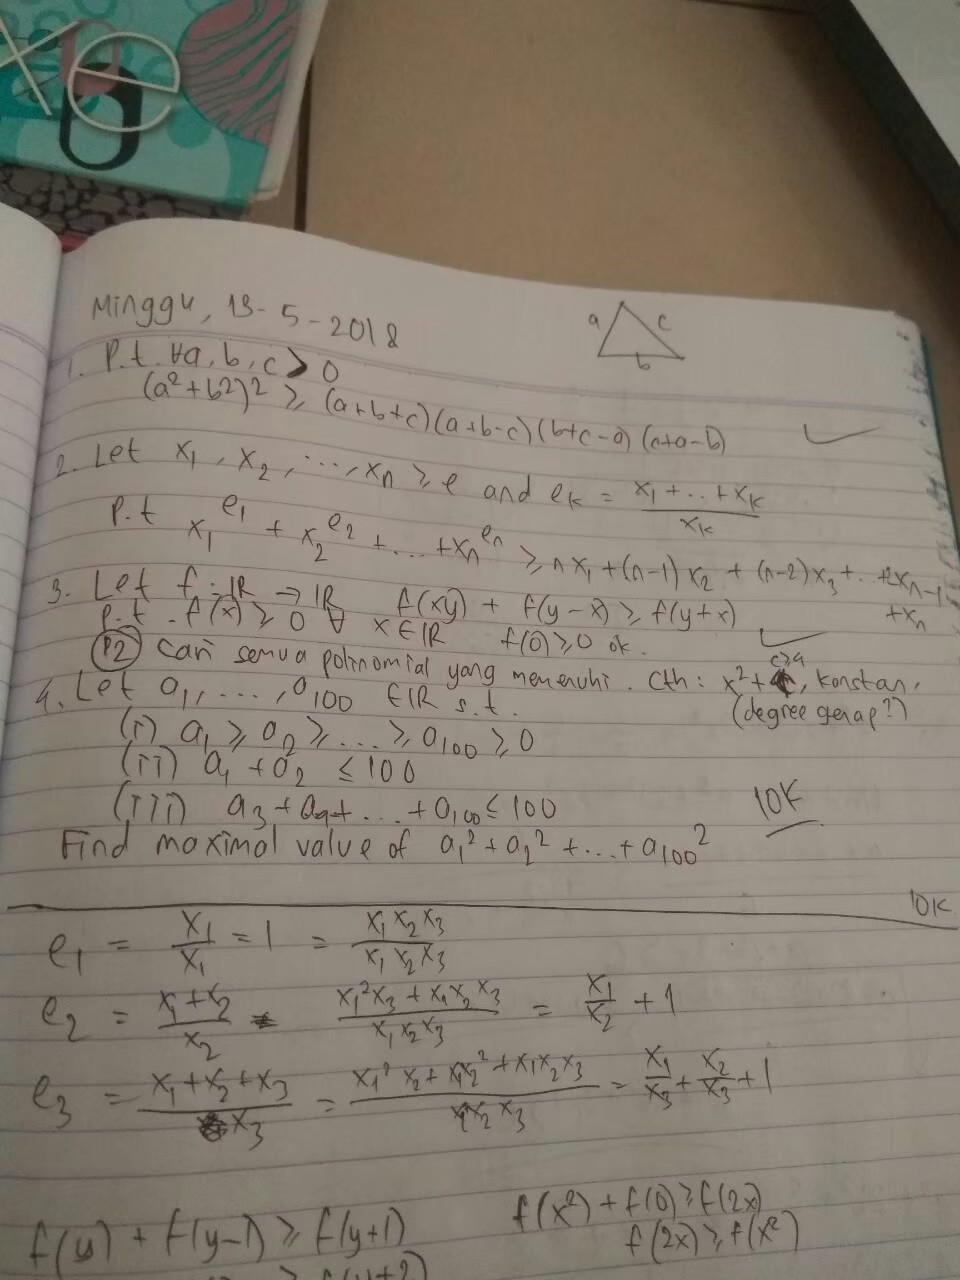 Minggu, 13-5-2018
a c b
1. P.t. ∀a, b, c > 0
(a²+b²)² ≥ (a+b+c)(a+b-c)(b+c-a)(c+a-b)
2. Let x₁, x₂, ..., xₙ ≥ e and eₖ = (x₁+..+xₖ)/xₖ
P.t x₁^e₁ + x₂^e₂ + ... + xₙ^eₙ ≥ nx₁+(n-1)x₂+(n-2)x₃+..+2xₙ₋₁
+xₙ
3. Let f: ℝ → ℝ f(xy) + f(y-x) ≥ f(y+x)
P.t. f(x) ≥ 0 ∀ x∈ℝ f(0) ≥ 0 ok.
P2 Cari semua polinomial yang memenuhi. Cth: x²+c, konstan,
(degree genap?)
4. Let a₁, ..., a₁₀₀ ∈ℝ s.t.
(i) a₁ ≥ a₂ ≥ ... ≥ a₁₀₀ ≥ 0
(ii) a₁+a₂ ≤ 100
(iii) a₃+a₄+...+a₁₀₀ ≤ 100
10K
Find maximal value of a₁²+a₂²+...+a₁₀₀²
10K
e₁ = x₁/x₁ = 1 = x₁x₂x₃/x₁x₂x₃
e₂ = (x₁+x₂)/x₂ = (x₁²x₃+x₁x₂x₃)/x₁x₂x₃ = x₁/x₂ + 1
e₃ = (x₁+x₂+x₃)/x₃ = (x₁²x₂+x₁x₂²+x₁x₂x₃)/x₁x₂x₃ = x₁/x₃ + x₂/x₃ + 1
f(x²)+f(0) ≥ f(2x)
f(y) + f(y-1) ≥ f(y+1)
f(2x) ≥ f(x²)
≥ f(y+2)